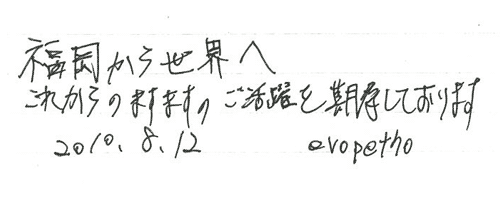 福岡から世界へ
これからのますますのご活躍を期待しております
2010.8.12 evopetho